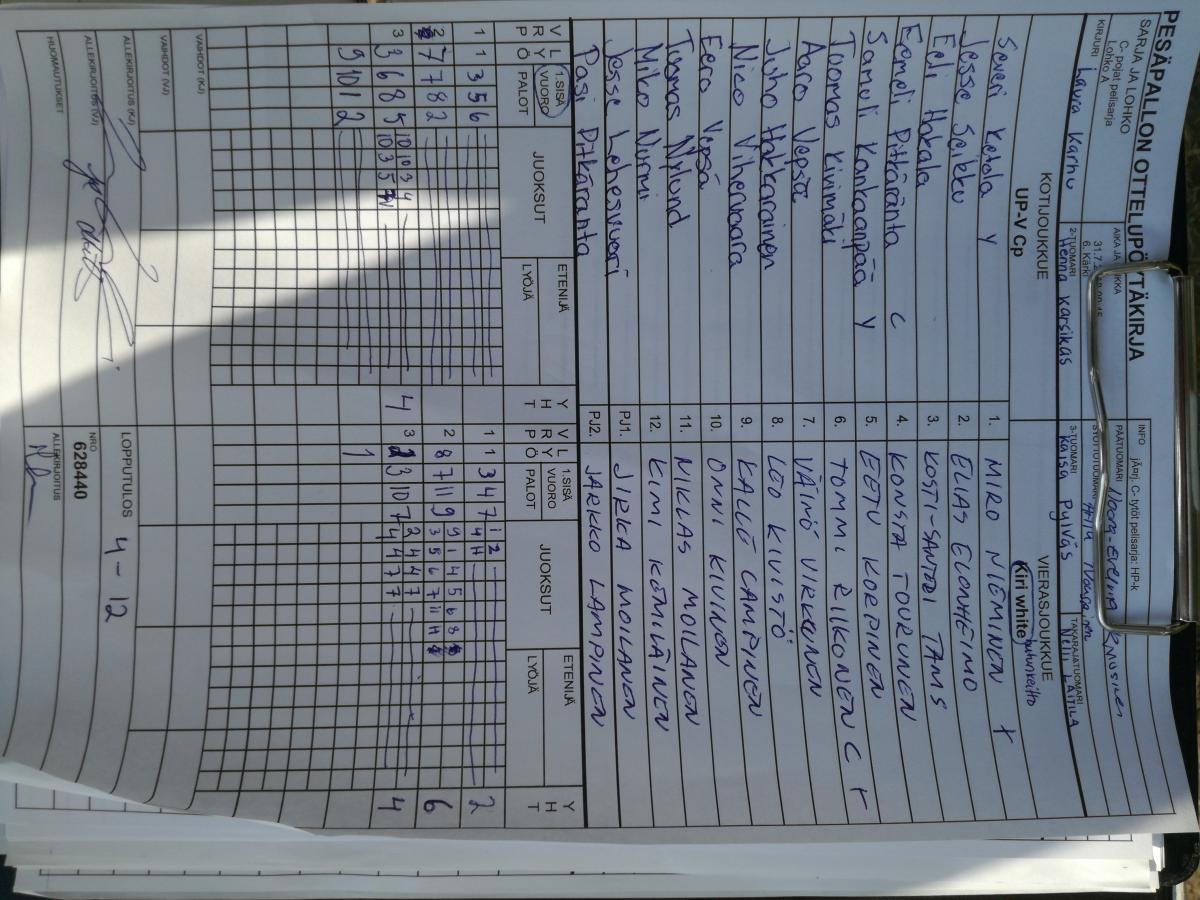 PESÄPALLON OTTELUPÖYTÄKIRJA
INFO
jÄ¤rj. C-tytöt pelisarja: HP-k
SARJA JA LOHKO
C- pojat pelisarja
Lohko A
31.7.
6. Kärki
PÄÄTUOMARI
Noora-Eveliina
KIRJURI
Laura Karhu
2-TUOMARI
Henna Karsikas
3-TUOMARI
Kaisa Pylväs
TAKARAJATUOMARI
Nelli LAITILA
KOTIJOUKKUE
UP-V Cp
VIERASJOUKKUE
Kiri white
Severi Ketola Y
1. MIRO NIEMINEN +
Jesse Seikku
2. ELIAS ELONHEIMO
Eeli Hakala
3. KOSTI-SANTERI TAMS
Eemeli Pitkäranta C
4. KONSTA TOURUNEN
Samuli Kankaanpää Y
5. EETU KORPINEN
Tuomas Kivimäki
6. TOMMI RIIKONEN C +
Aaro Vepsä
7. VÄINÖ VIRKKUNEN
Juho Hakkarainen
8. LEO KIVISTÖ
Nico Vihervaara
9. KALLE LAMPINEN
Eero Vepsä
10. ONNI KIVINEN
Tuomas Nylund
11. NIKLAS MOILANEN
Miko Nurmi
12. KIMI KÖMILÄINEN
Jesse Lehesvuori
PJ1. JIRKA MOILANEN
Pasi Pitkäranta
PJ2. JARKKO LAMPINEN
V R Ö
L Y Ö
1.SISÄ
VUORO
PALOT
JUOKSUT
ETENIJÄ
LYÖJÄ
Y H T
V R Ö
L Y Ö
1.SISÄ
VUORO
PALOT
JUOKSUT
ETENIJÄ
LYÖJÄ
Y H T
1 1 3 5 6
1 1 3 4 7
1 2
4 H
2
2 7 7 8 2
2 8 7 11 9
9 1 4 5 6 8
3 5 6 7 11 H
6
3 3 6 8 5
10 10 3 4
10 3 5
4
3 2 3 10 7
2 4 4 7
4 4 7 7
4
9 10 1 2
1
VAIHDOT (KJ)
VAIHDOT (VJ)
ALLEKIRJOITUS (KJ)
LOPPUTULOS
4 - 12
ALLEKIRJOITUS (VJ)
NRO
628440
HUOMAUTUKSET
ALLEKIRJOITUS